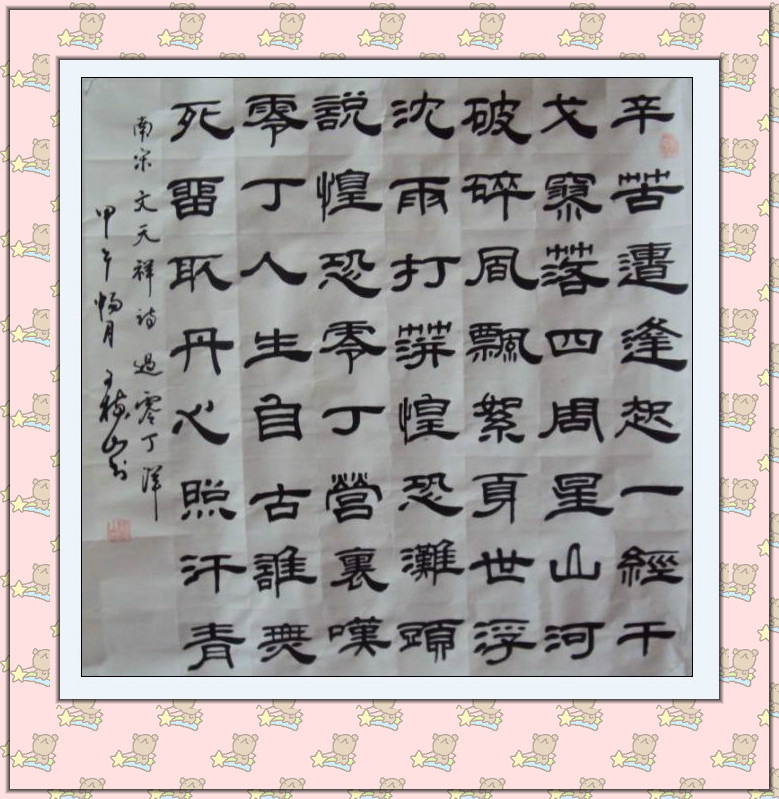 辛苦遭逢起一經干
戈寥落四周星山河
破碎風飄絮身世浮
沈雨打萍惶恐灘頭
說惶恐零丁營裏嘆
零丁人生自古誰無
死留取丹心照汗青
南宋文天祥詩過零丁洋
甲午暢月王